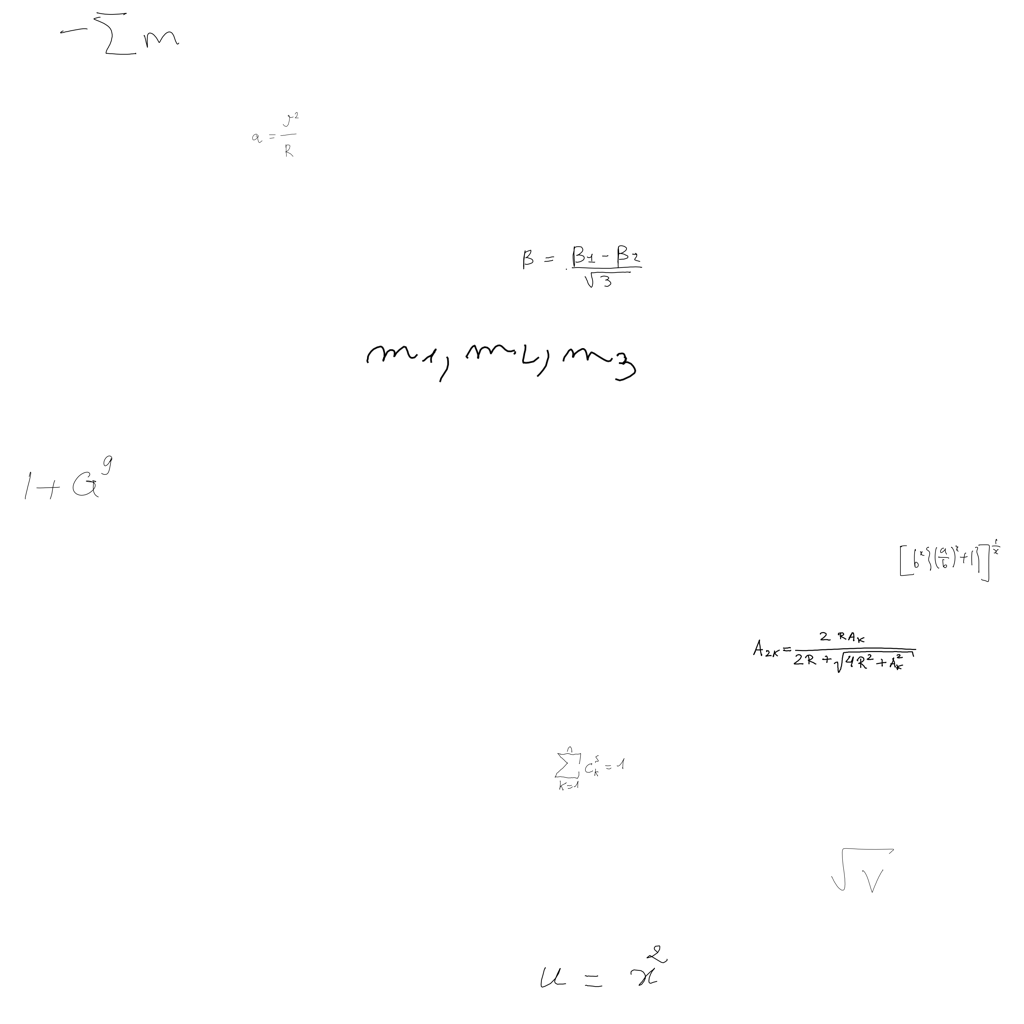 -\sum m
a = \frac{v^2}{R}
B = \frac{B_1 - B_2}{\sqrt{3}}
m_1, m_2, m_3
1 + G^g
[b^x \{(\frac{a}{b})^x + 1\}]^{\frac{1}{x}}
A_{2K} = \frac{2RA_K}{2R + \sqrt{4R^2 + A_K^2}}
\sum_{k=1}^{n} c_k^s = 1
\sqrt{V}
u = x^2